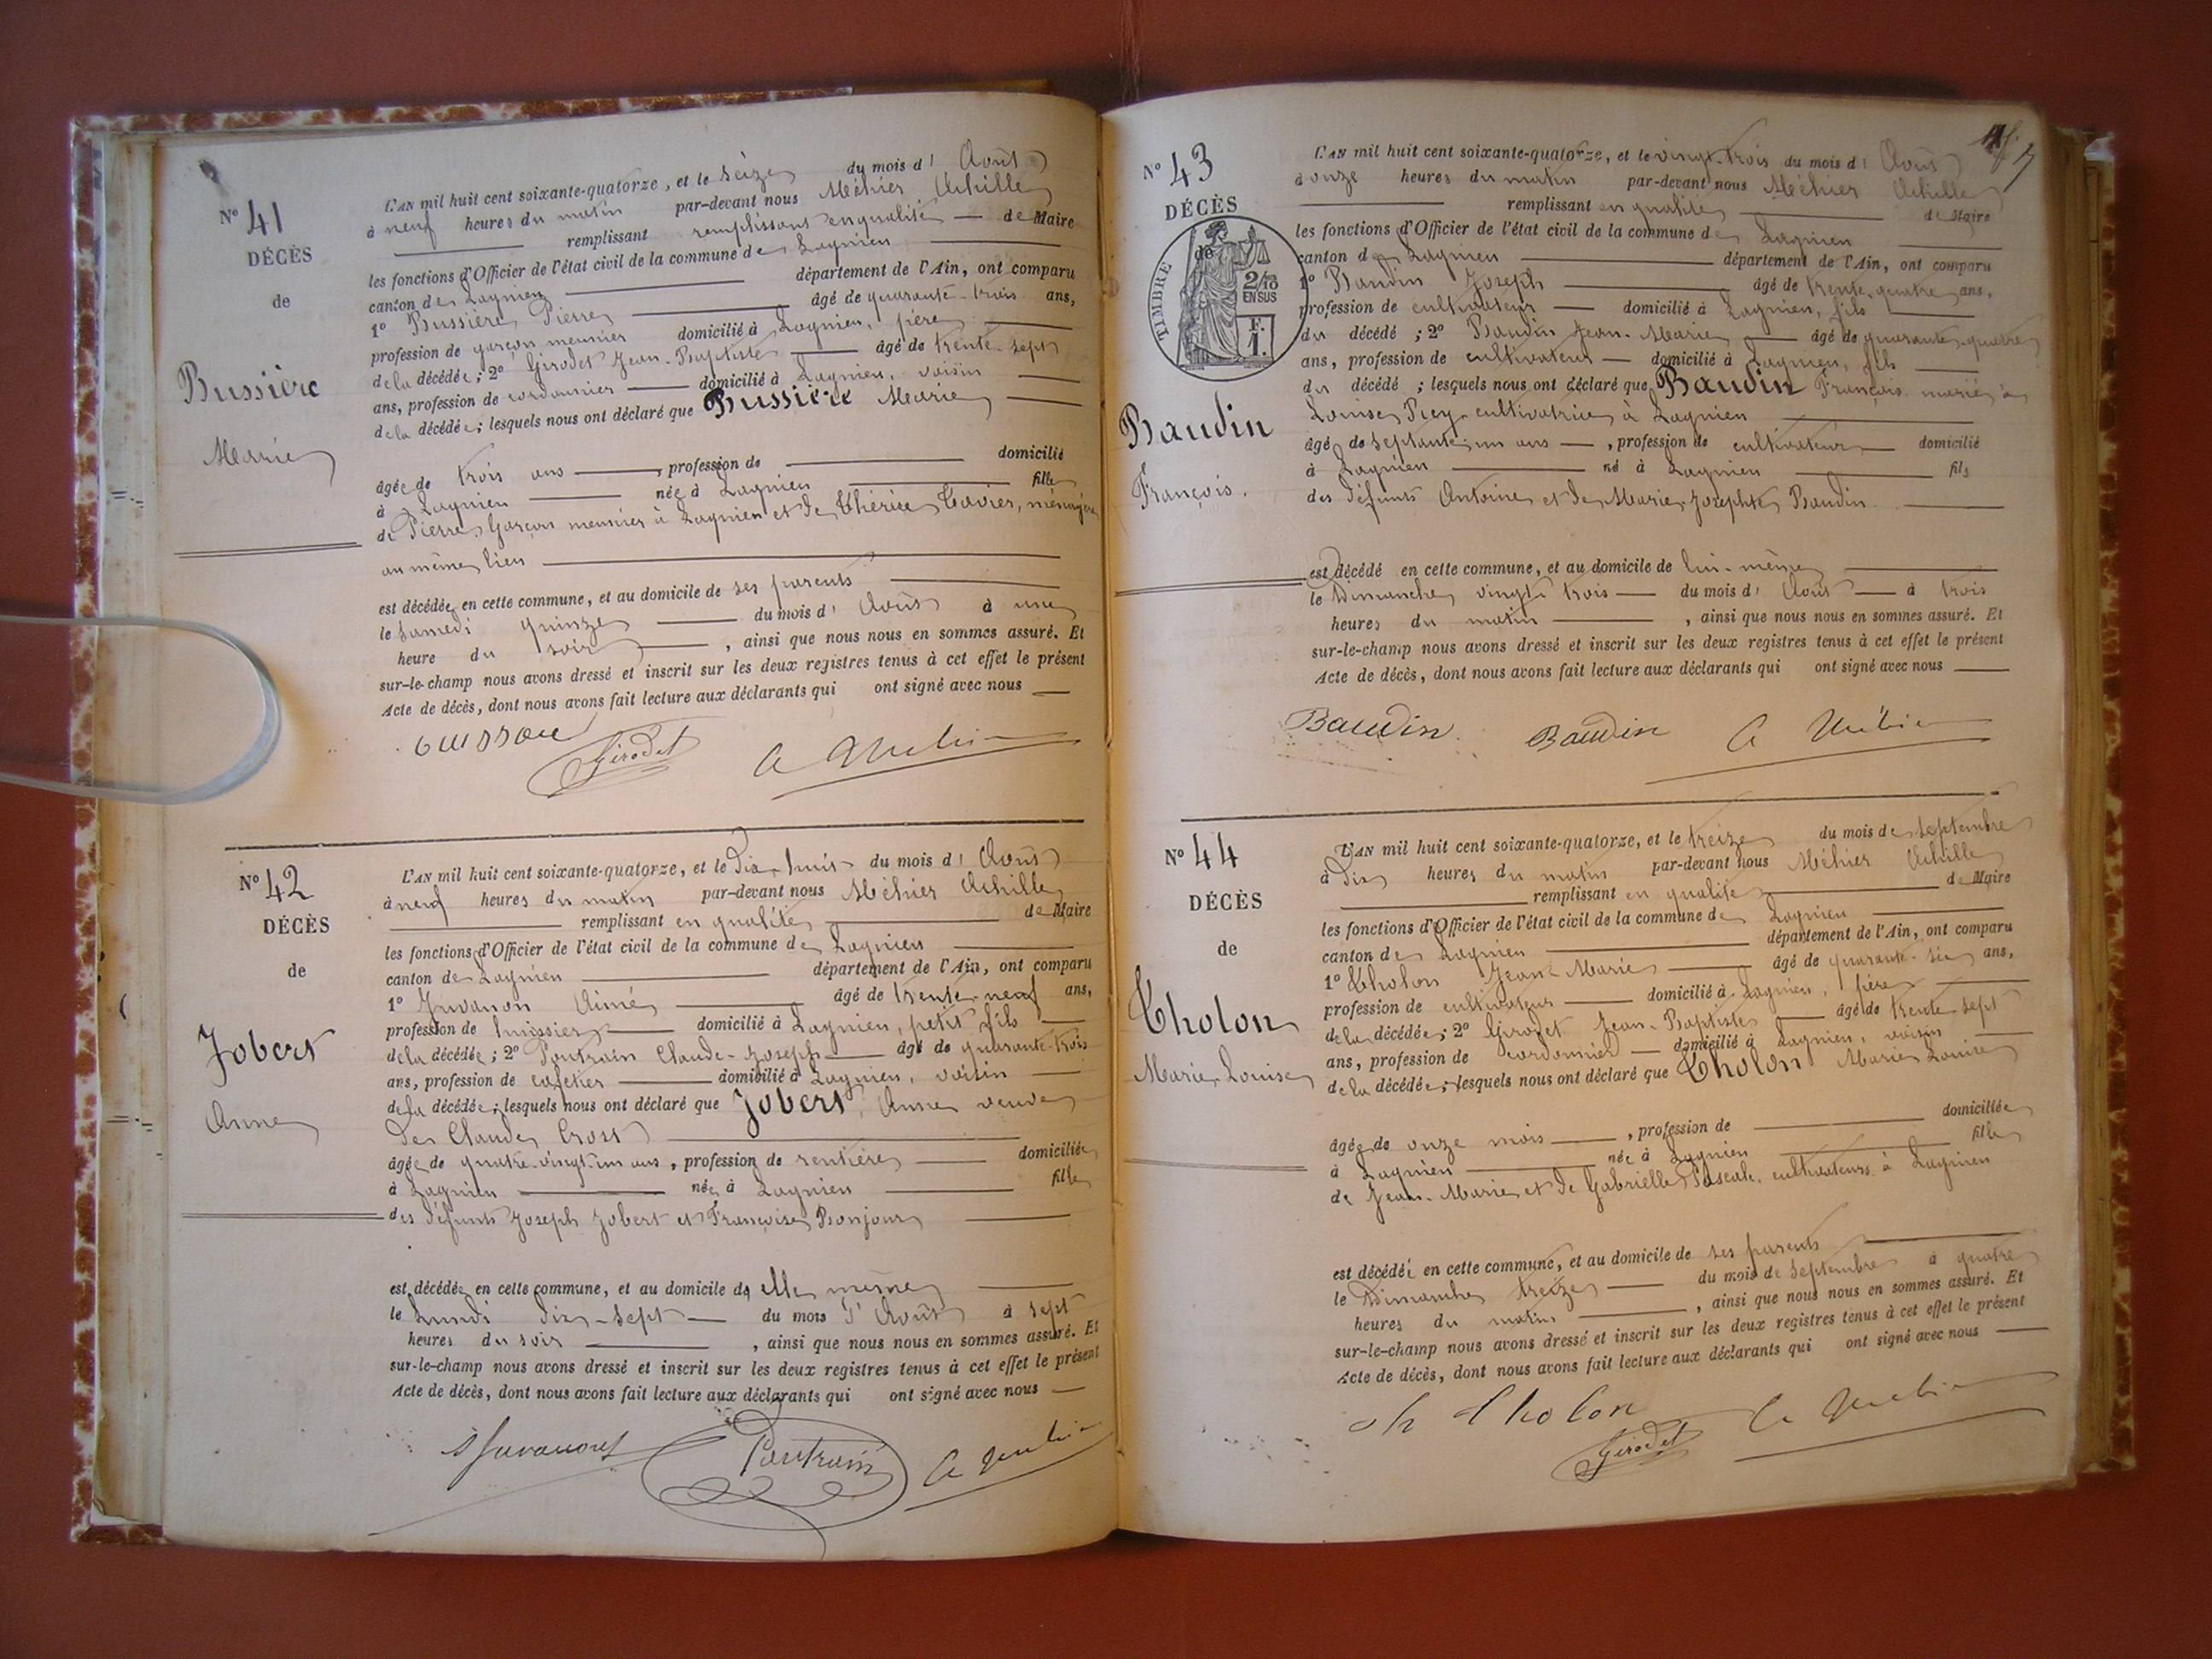 N° 41
DÉCÈS
de
Bussière
Marie
L'AN mil huit cent soixante-quatorze, et le seize du mois d' Août
à neuf heures du matin par-devant nous Méhier Achille
remplissant remplissant en qualité de Maire
les fonctions d'Officier de l'état civil de la commune de Lagnieu
canton de Lagnieu département de l'Ain, ont comparu
1° Bussière Pierre âgé de quarante-trois ans,
profession de garçon meunier domicilié à Lagnieu, père
de la décédée; 2° Girodet Jean-Baptiste âgé de trente-sept
ans, profession de cordonnier domicilié à Lagnieu, voisin
de la décédée; lesquels nous ont déclaré que Bussière Marie
âgée de trois ans, profession de domicilié
à Lagnieu née à Lagnieu fille
de Pierre, Garçon meunier à Lagnieu et de Thérèse Tavier, ménagère
au même lieu
est décédée en cette commune, et au domicile de ses parents
le Samedi quinze du mois d' Août à une
heure du soir, ainsi que nous nous en sommes assuré. Et
sur-le-champ nous avons dressé et inscrit sur les deux registres tenus à cet effet le présent
Acte de décès, dont nous avons fait lecture aux déclarants qui ont signé avec nous
Girodet A Méhier
N° 42
DÉCÈS
de
Jobert
Anne
L'AN mil huit cent soixante-quatorze, et le dix-huit du mois d' Août
à neuf heures du matin par-devant nous Méhier Achille
remplissant en qualité de Maire
les fonctions d'Officier de l'état civil de la commune de Lagnieu
canton de Lagnieu département de l'Ain, ont comparu
1° Juvanon Aimé âgé de trente-neuf ans,
profession de huissier domicilié à Lagnieu, petit fils
de la décédée; 2° Poutrain Claude-Joseph âgé de quarante-trois
ans, profession de cafetier domicilié à Lagnieu, voisin
de la décédée; lesquels nous ont déclaré que Jobert, Anne veuve
de Claude Crost
âgée de quatre-vingt-un ans, profession de rentière domiciliée
à Lagnieu née à Lagnieu fille
des défunts Joseph Jobert et Françoise Bonjour
est décédée en cette commune, et au domicile de elle même
le Lundi dix-sept du mois d'Août à sept
heures du soir, ainsi que nous nous en sommes assuré. Et
sur-le-champ nous avons dressé et inscrit sur les deux registres tenus à cet effet le présent
Acte de décès, dont nous avons fait lecture aux déclarants qui ont signé avec nous
Juvanon Poutrain A Méhier
N° 43
DÉCÈS
de
TIMBRE
2/10
EN SUS
F.
1.
Baudin
François.
L'AN mil huit cent soixante-quatorze, et le vingt-trois du mois d' Août
à onze heures du matin par-devant nous Méhier Achille
remplissant en qualité de Maire
les fonctions d'Officier de l'état civil de la commune de Lagnieu
canton de Lagnieu département de l'Ain, ont comparu
1° Baudin Joseph âgé de trente-quatre ans,
profession de cultivateur domicilié à Lagnieu, fils
du décédé; 2° Baudin Jean-Marie âgé de quarante-quatre
ans, profession de cultivateur domicilié à Lagnieu, fils
du décédé; lesquels nous ont déclaré que Baudin François marié à
Louise Pley cultivatrice à Lagnieu
âgé de septante-un ans, profession de cultivateur domicilié
à Lagnieu né à Lagnieu fils
des défunts Antoine et de Marie Josephte Baudin.
est décédé en cette commune, et au domicile de lui-même
le Dimanche vingt-trois du mois d' Août à trois
heures du matin, ainsi que nous nous en sommes assuré. Et
sur-le-champ nous avons dressé et inscrit sur les deux registres tenus à cet effet le présent
Acte de décès, dont nous avons fait lecture aux déclarants qui ont signé avec nous
Baudin. Baudin A Méhier
N° 44
DÉCÈS
de
Tholon
Marie Louise
L'AN mil huit cent soixante-quatorze, et le treize du mois de septembre
à dix heures du matin par-devant nous Méhier Achille
remplissant en qualité de Maire
les fonctions d'Officier de l'état civil de la commune de Lagnieu
canton de Lagnieu département de l'Ain, ont comparu
1° Tholon Jean-Marie âgé de quarante-six ans,
profession de cultivateur domicilié à Lagnieu, père
de la décédée; 2° Girodet Jean-Baptiste âgé de trente-sept
ans, profession de cordonnier domicilié à Lagnieu, voisin
de la décédée; lesquels nous ont déclaré que Tholon Marie Louise
âgée de onze mois, profession de domiciliée
à Lagnieu née à Lagnieu fille
de Jean-Marie et de Gabrielle Pascale, cultivateurs à Lagnieu
est décédée en cette commune, et au domicile de ses parents
le Dimanche treize du mois de septembre à quatre
heures du matin, ainsi que nous nous en sommes assuré. Et
sur-le-champ nous avons dressé et inscrit sur les deux registres tenus à cet effet le présent
Acte de décès, dont nous avons fait lecture aux déclarants qui ont signé avec nous
Tholon Girodet A Méhier